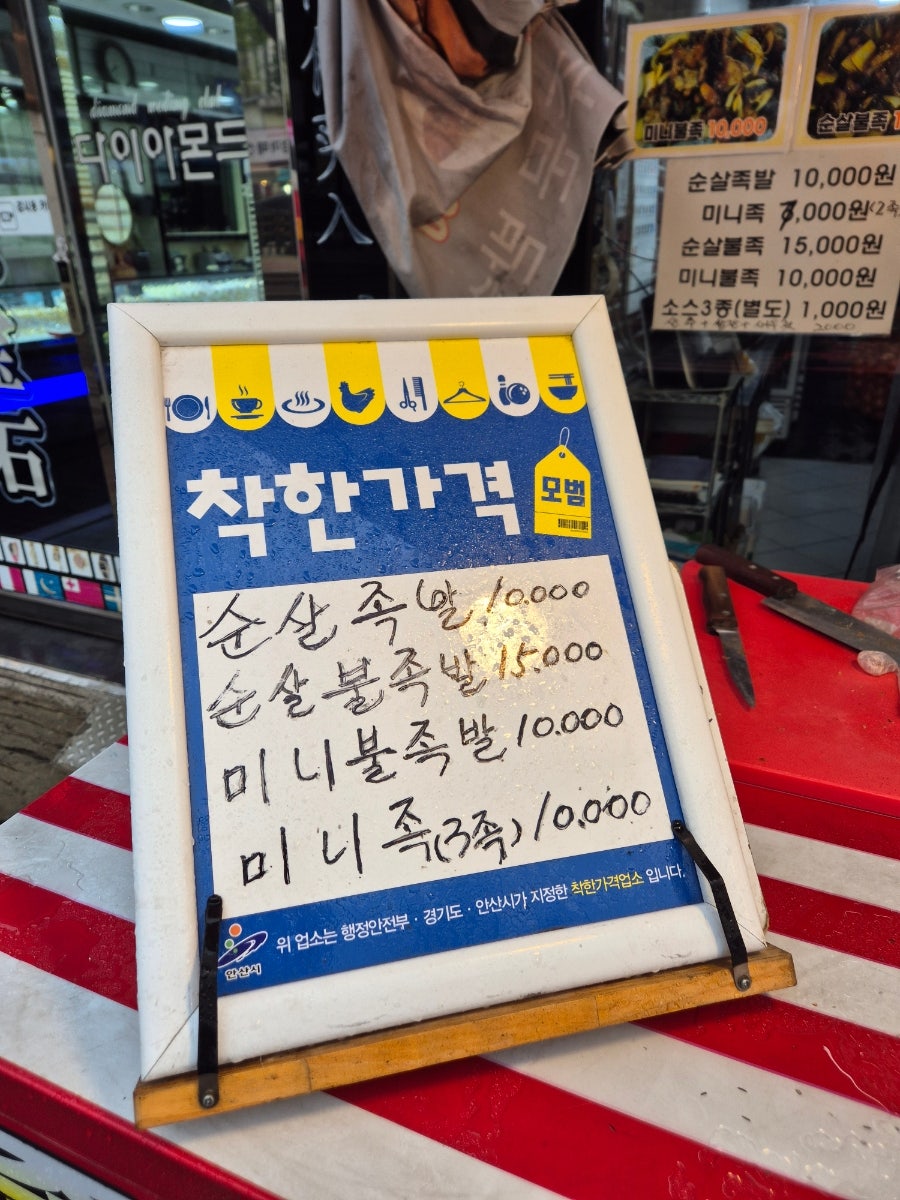 diamond wedding club
다이아몬드
미니불족 10,000
순살불족 1
순살족발 10,000원
미니족 8,000원(2족
순살불족 15,000원
미니불족 10,000원
소스3종(별도) 1,000원
2000
착한가격
모범
순살족발 10.000
순살불족발 15.000
미니불족발 10.000
미니족(3족) 10.000
위 업소는 행정안전부 · 경기도 · 안산시가 지정한 착한가격업소 입니다.
안산시